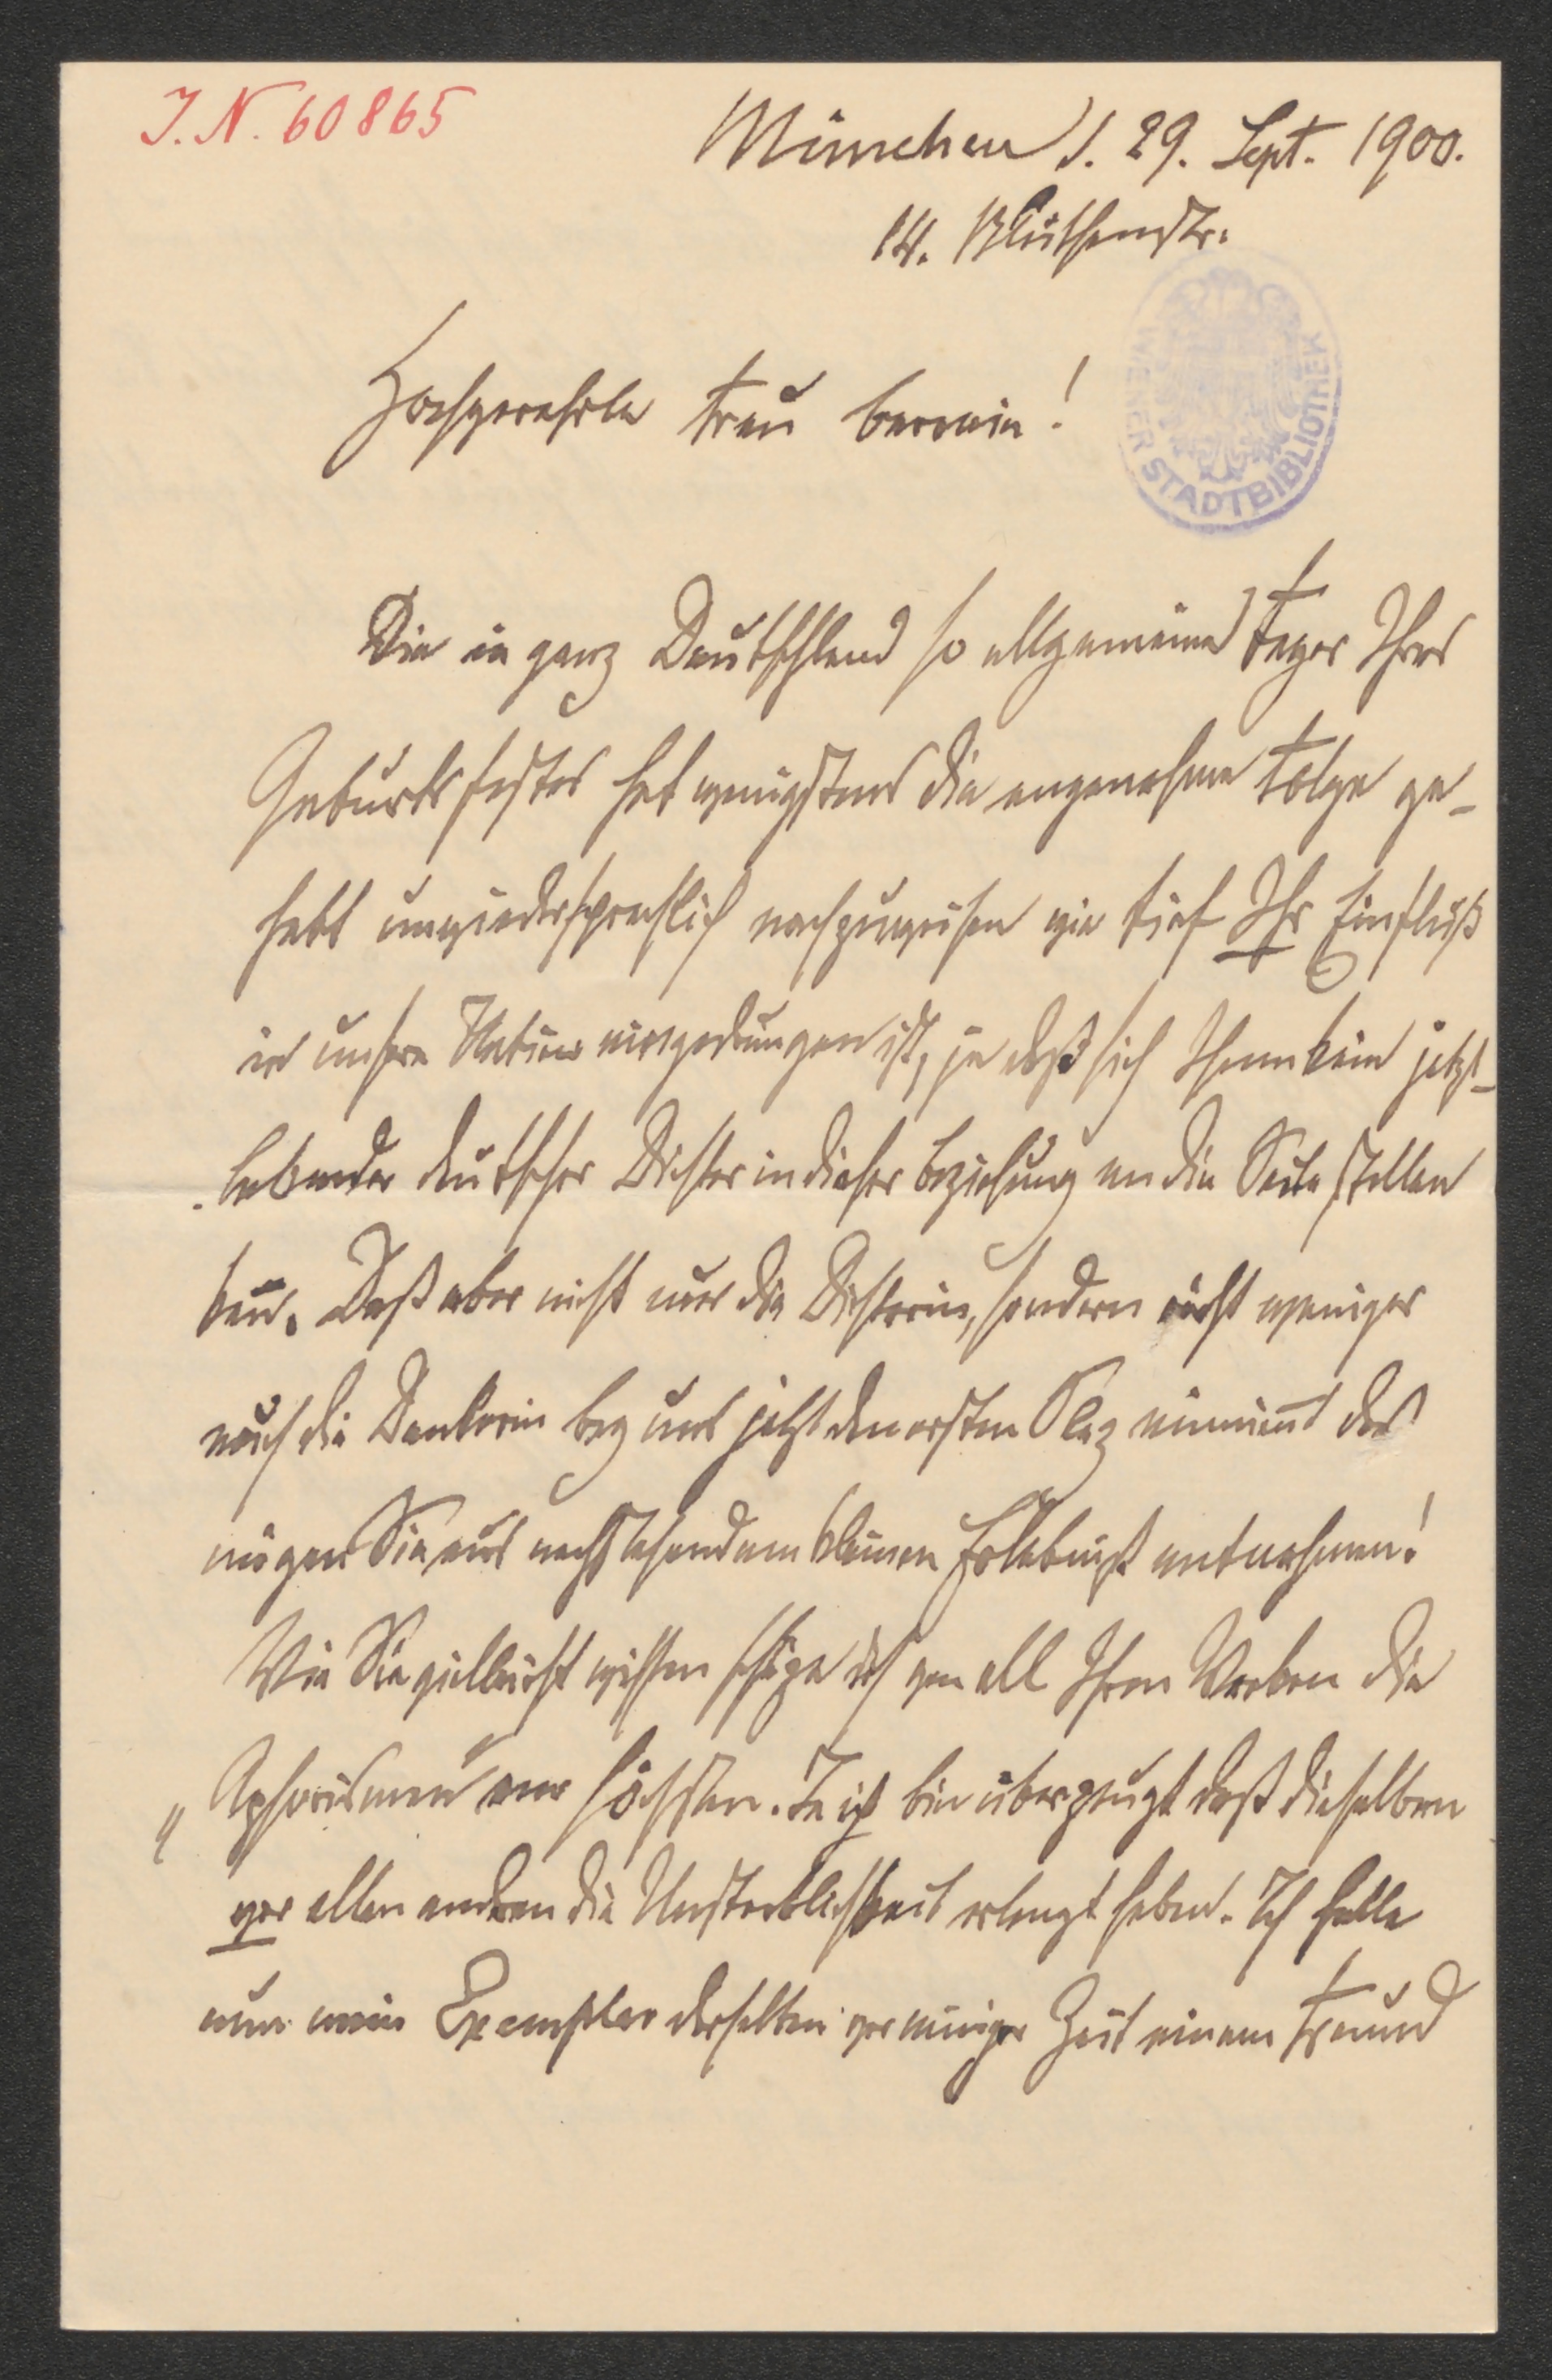 J. N. 60865
München d. 29. Sept. 1900.
14. Blüthenstr.
WIENER STADTBIBLIOTHEK
Hochverehrte Frau Baronin!
Die in ganz Deutschland so allgemeine Feyer Ihres
Geburtsfestes hat wenigstens die angenehme Folge ge-
habt unwiedersprechlich nachzuweisen wie tief Ihr Einfluß
in unsre Nation eingedrungen ist, ja daß sich Ihnen kein jetzt-
lebender deutscher Dichter in dieser Beziehung an die Seite stellen
kan̄. Daß aber nicht nur die Dichterin, sondern nicht weniger
auch die Denkerin bey uns jetzt den ersten Plaz einnim̄t das
mögen Sie aus nachstehendem kleinen Erlebniß entnehmen!
Wie Sie vielleicht wissen schäze ich von all Ihren Werken die
„Aphorismen" am höchsten. Ja ich bin überzeugt daß dieselben
vor allen andren die Unsterblichkeit erlangt haben. Ich hatte
nun mein Exemplar derselben vor einiger Zeit einem Freund